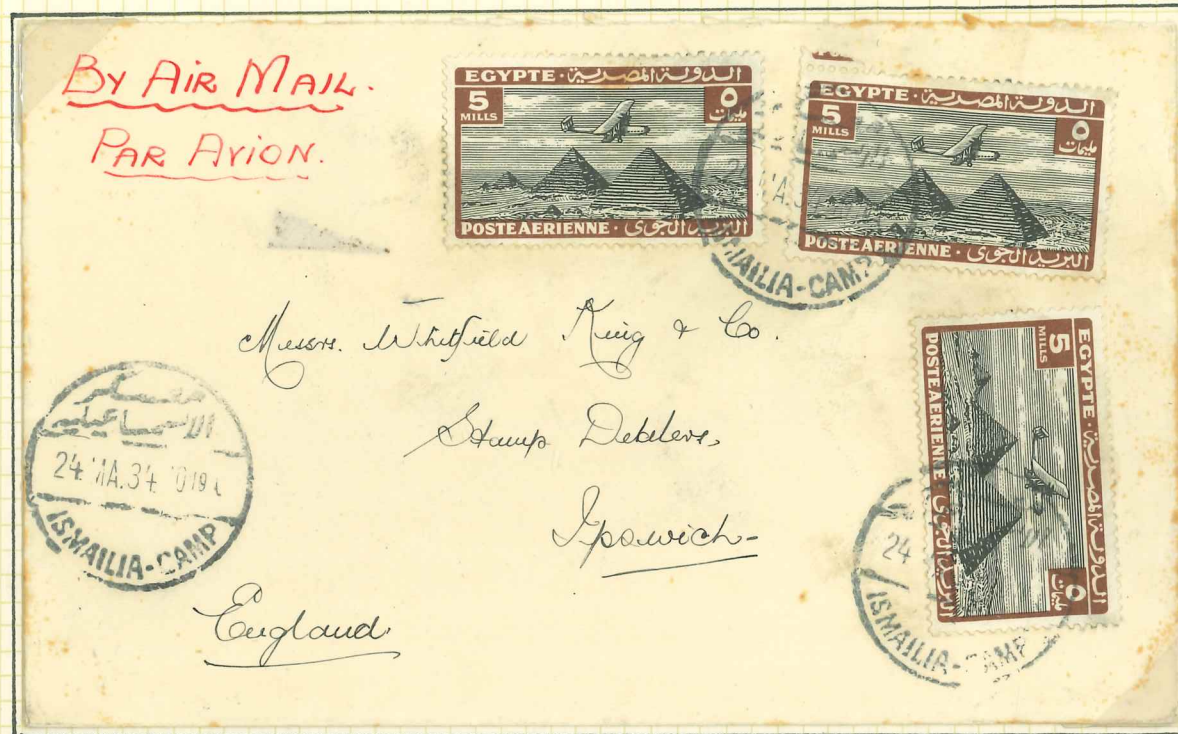 By Air Mail.
Par Avion.
EGYPTE · الدولة المصرية
5 ٥
MILLS
POSTE AERIENNE · البريد الجوى
EGYPTE · الدولة المصرية
5 ٥
MILLS مليمات
POSTE AERIENNE · البريد الجوى
ISMAILIA-CAMP
Messrs. Whitfield King & Co.
Stamp Dealers,
Ipswich
England
الاسماعيلية
24 MA.34
ISMAILIA-CAMP
EGYPTE · الدولة المصرية
5 ٥
MILLS
POSTE AERIENNE · البريد الجوى
24
ISMAILIA-CAMP